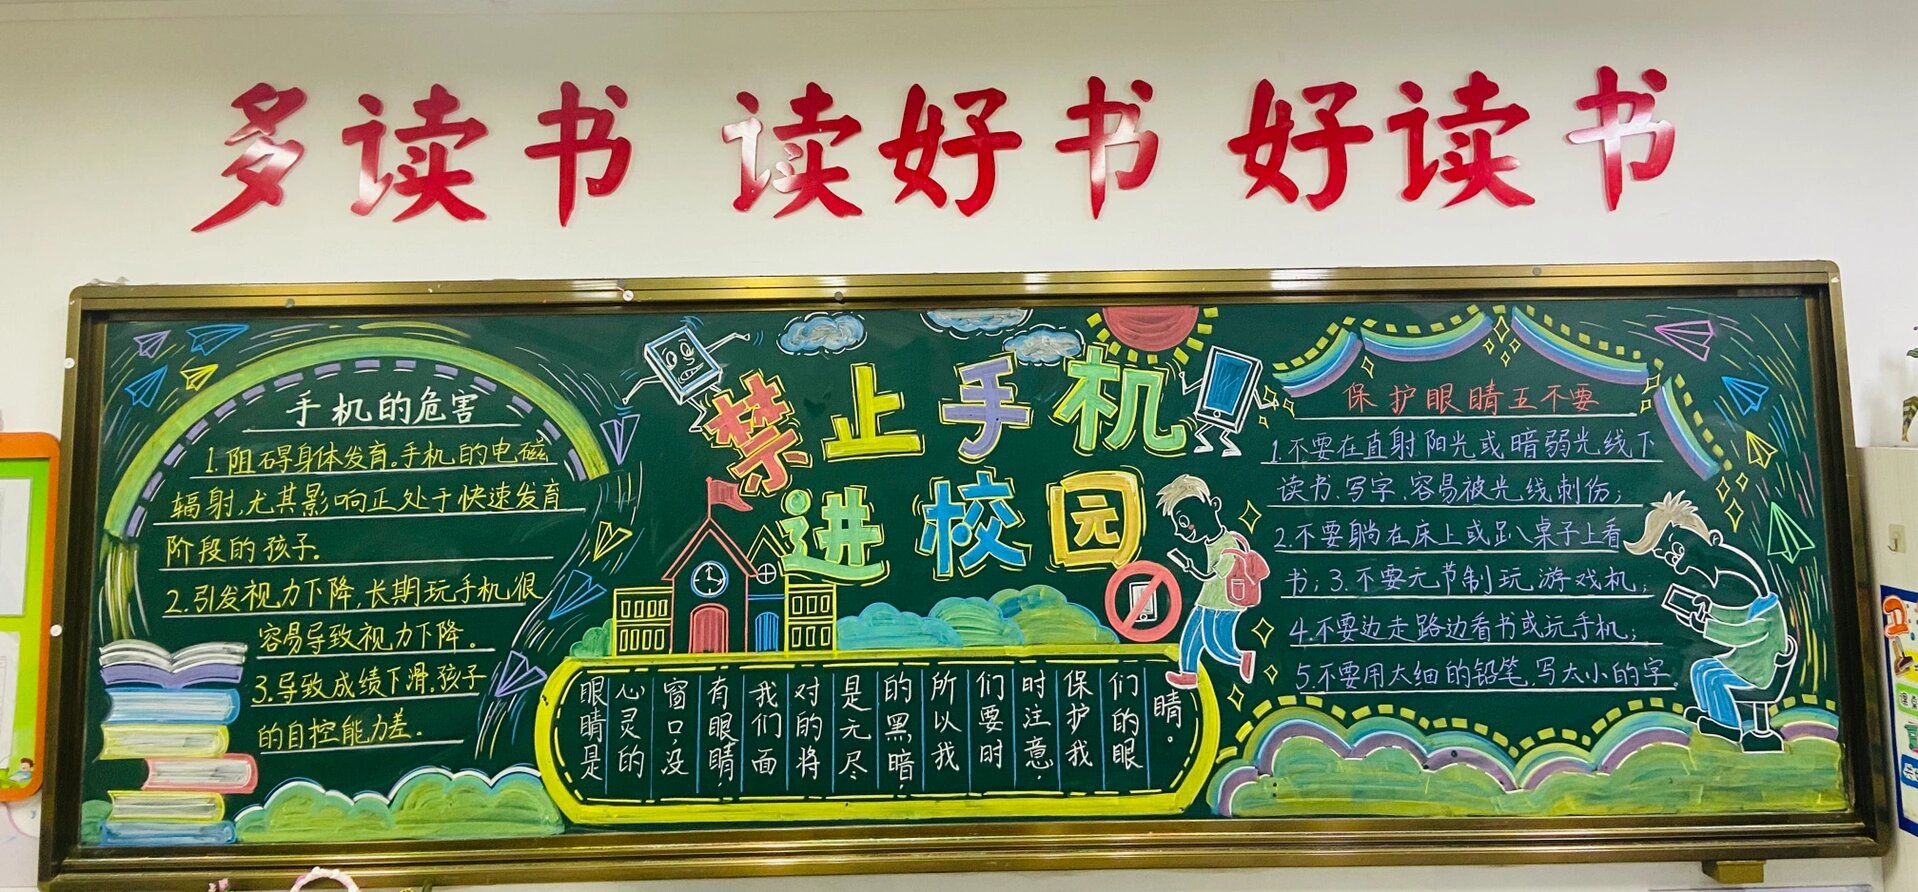 多读书 读好书 好读书
禁止手机
进校园
手机的危害
1.阻碍身体发育。手机的电磁
辐射,尤其影响正处于快速发育
阶段的孩子.
2.引发视力下降,长期玩手机,很
容易导致视力下降.
3.导致成绩下滑.孩子
的自控能力差.
眼睛是
心灵的
窗口没
有眼睛,
我们面
对的将
是无尽
的黑暗,
所以我
们要时
时注意,
保护我
们的眼
睛。
保护眼睛五不要
1.不要在直射阳光或暗弱光线下
读书.写字.容易被光线刺伤;
2.不要躺在床上或趴桌子上看
书;3.不要无节制玩游戏机;
4.不要边走路边看书或玩手机;
5.不要用太细的铅笔,写太小的字.